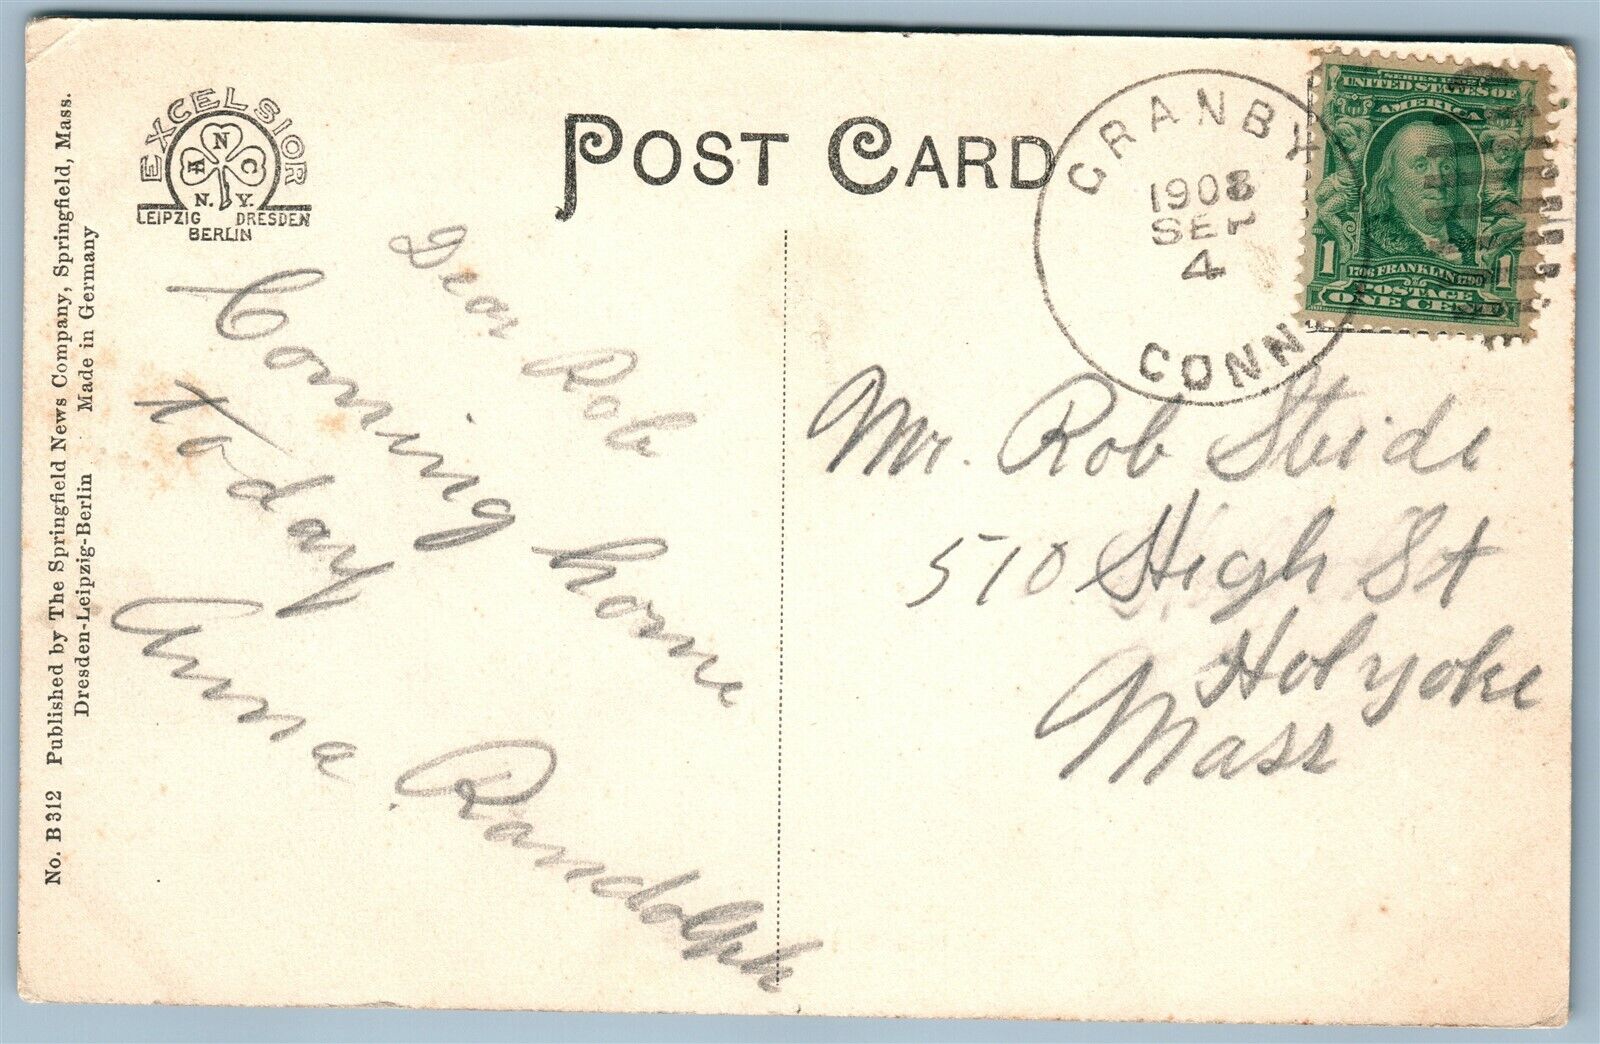 No. B 312 Published by The Springfield News Company, Springfield, Mass.
Dresden-Leipzig-Berlin Made in Germany
EXCELSIOR
A N C
N. Y.
LEIPZIG DRESDEN
BERLIN
POST CARD
GRANBY
1908
SEP
4
CONN
UNITED STATES OF
AMERICA
1 1706 FRANKLIN 1790 1
POSTAGE
ONE CENT
Dear Rob
Coming home
today
Anna Randolph
Mr. Rob Steidi
510 High St
Holyoke
Mass